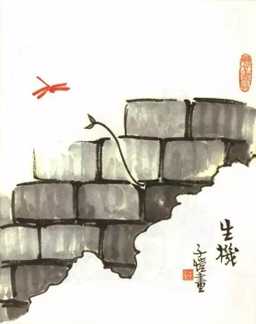 生機
子愷畫